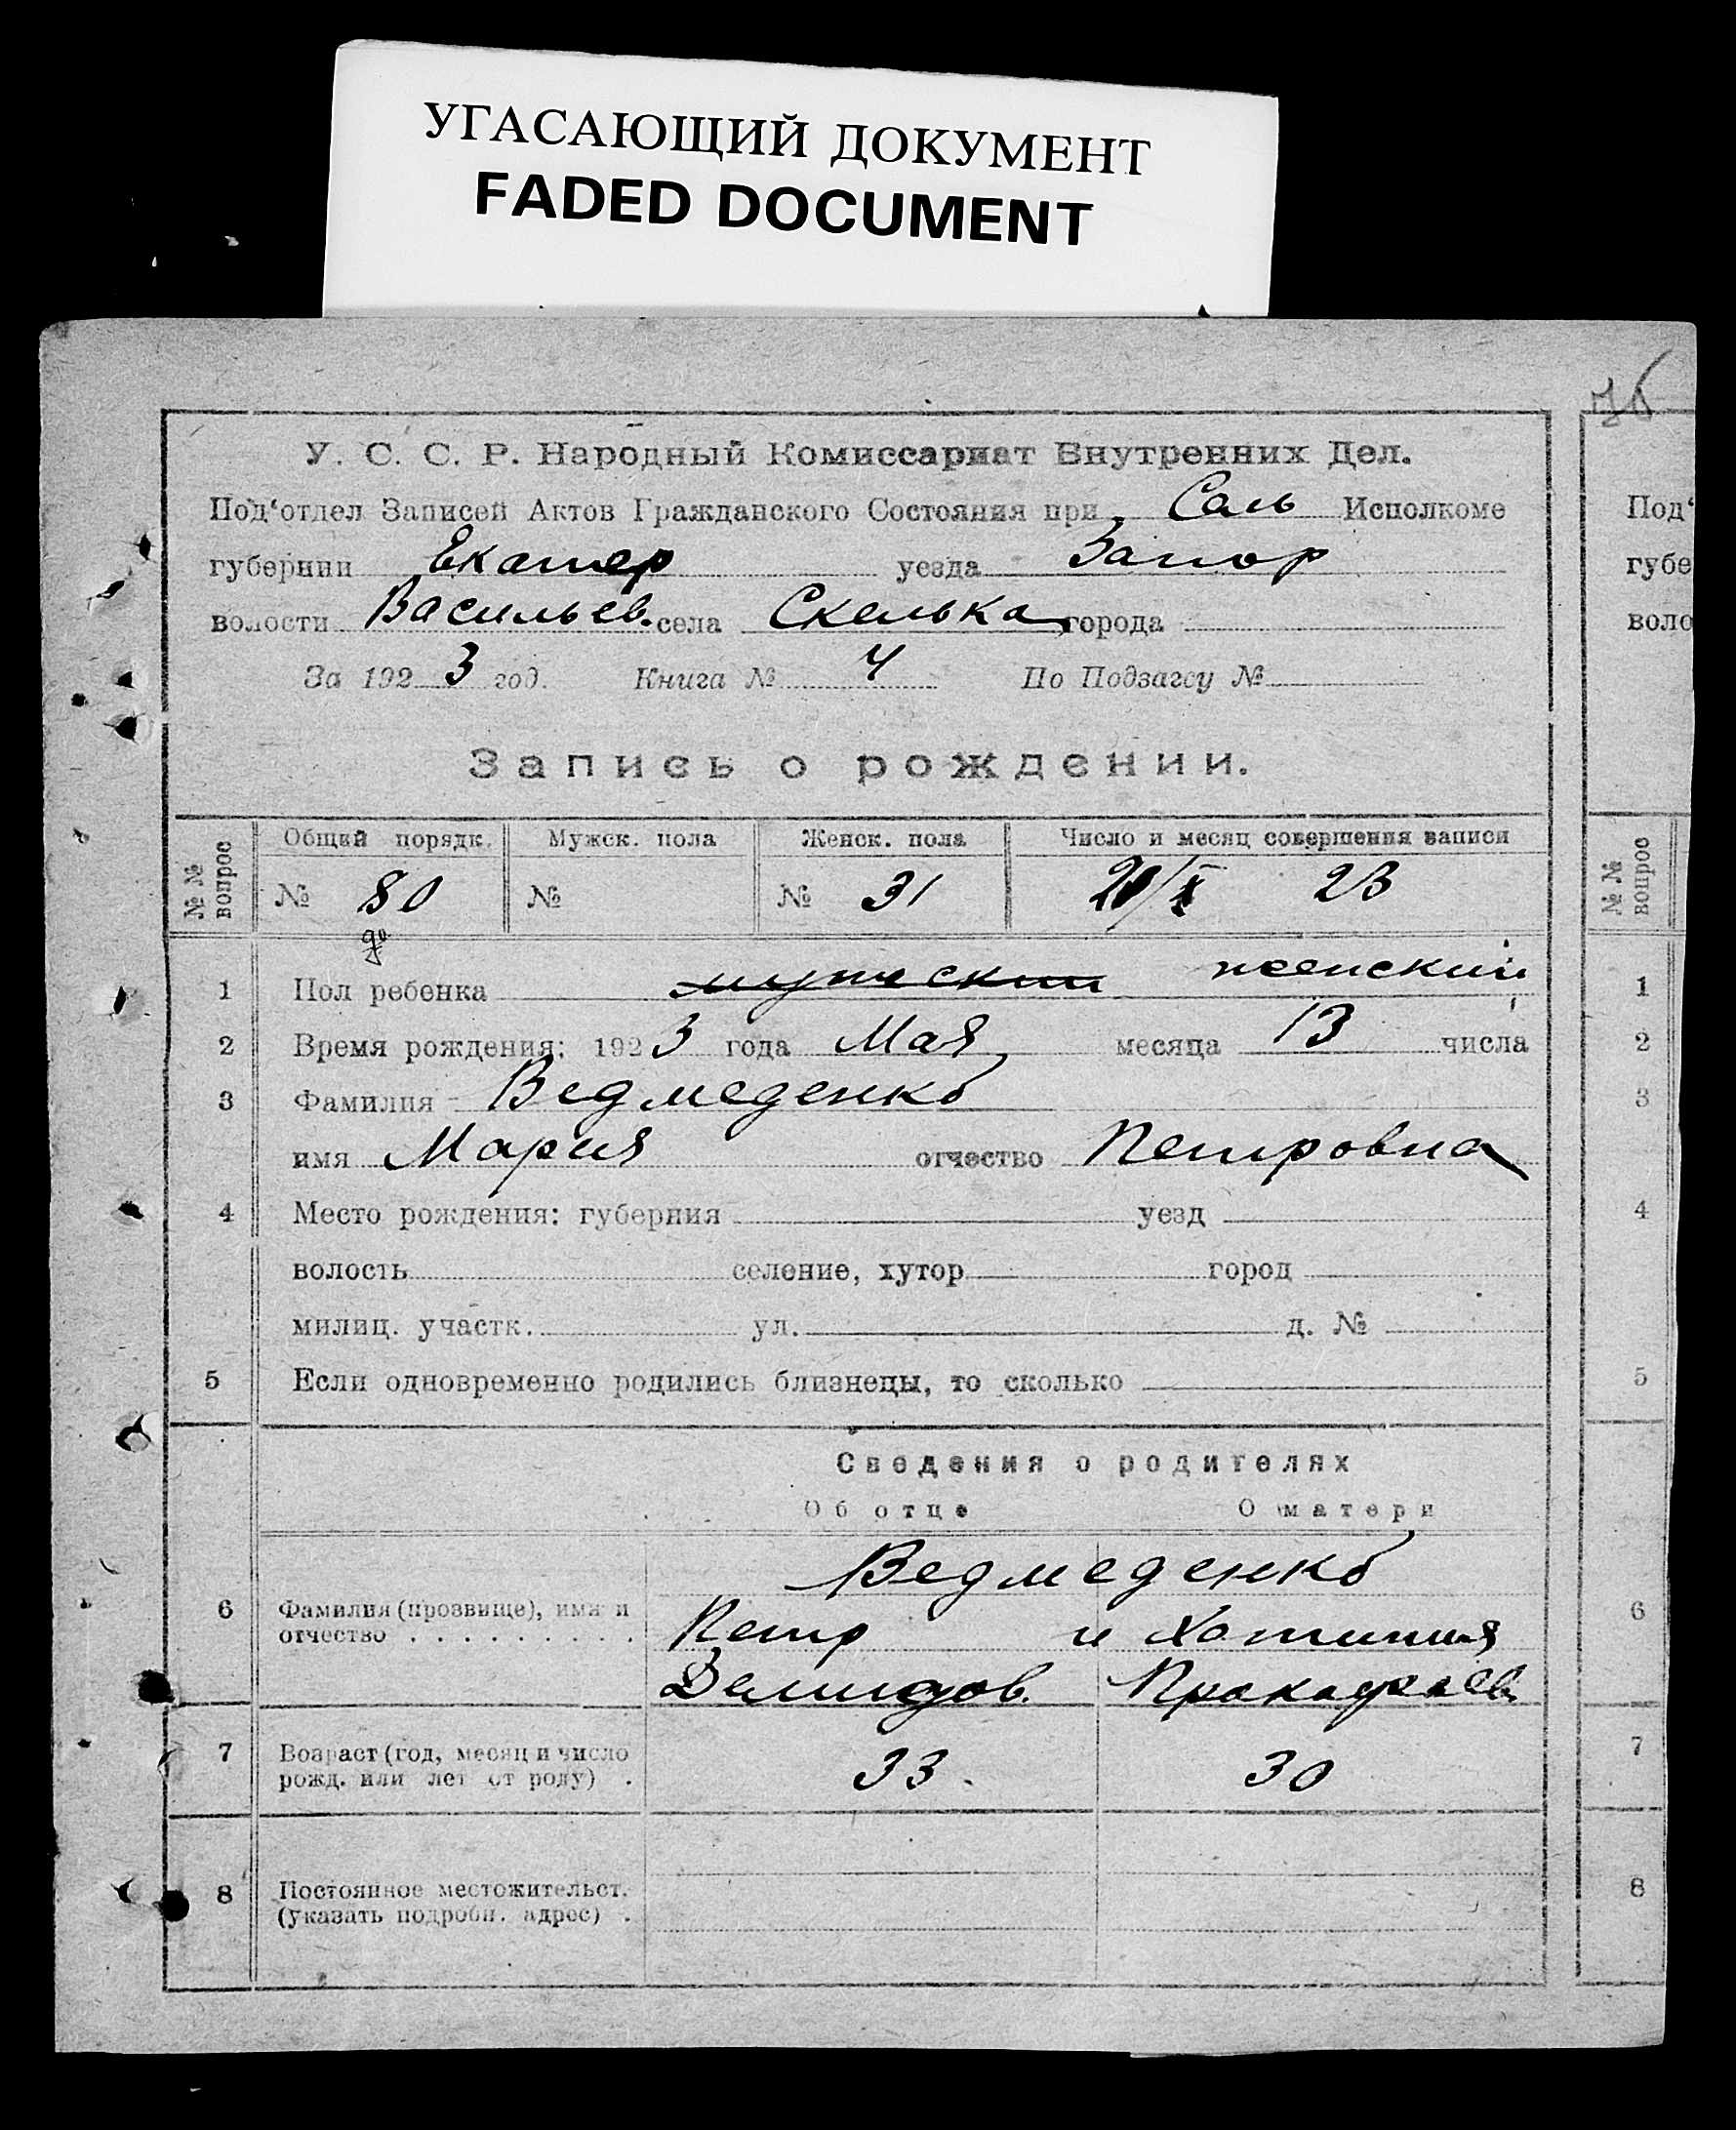 УГАСАЮЩИЙ ДОКУМЕНТ
FADED DOCUMENT
У. С. С. Р. Народный Комиссариат Внутренних Дел.
Под‘отдел Записей Актов Гражданского Состояния при Сель Исполкоме
губернии Екатер уезда Запор
волости Васильев. села Скелька города
За 1923 год. Книга № 4 По Подзагсу №
Запись о рождении.
№№ вопрос
Общий порядк. Мужск. пола Женск. пола Число и месяц совершения записи
№ 80 № № 31 23
1 Пол ребенка мужеский женский
2 Время рождения: 1923 года Мая месяца 13 числа
3 Фамилия Ведмеденко
имя Мария отчество Петровна
4 Место рождения: губерния уезд
волость селение, хутор город
милиц. участк. ул. д. №
5 Если одновременно родились близнецы, то сколько
Сведения о родителях
Об отце О матери
Ведмеденко
6 Фамилия (прозвище), имя и
отчество
Петр и Хотиния
Демидов. Прокофьев.
7 Возраст (год, месяц и число
рожд. или лет от роду) .
33. 30
8 Постоянное местожительст.
(указать подробн. адрес) .
Под‘
губе
воло
№№ вопрос
1
2
3
4
5
6
7
8